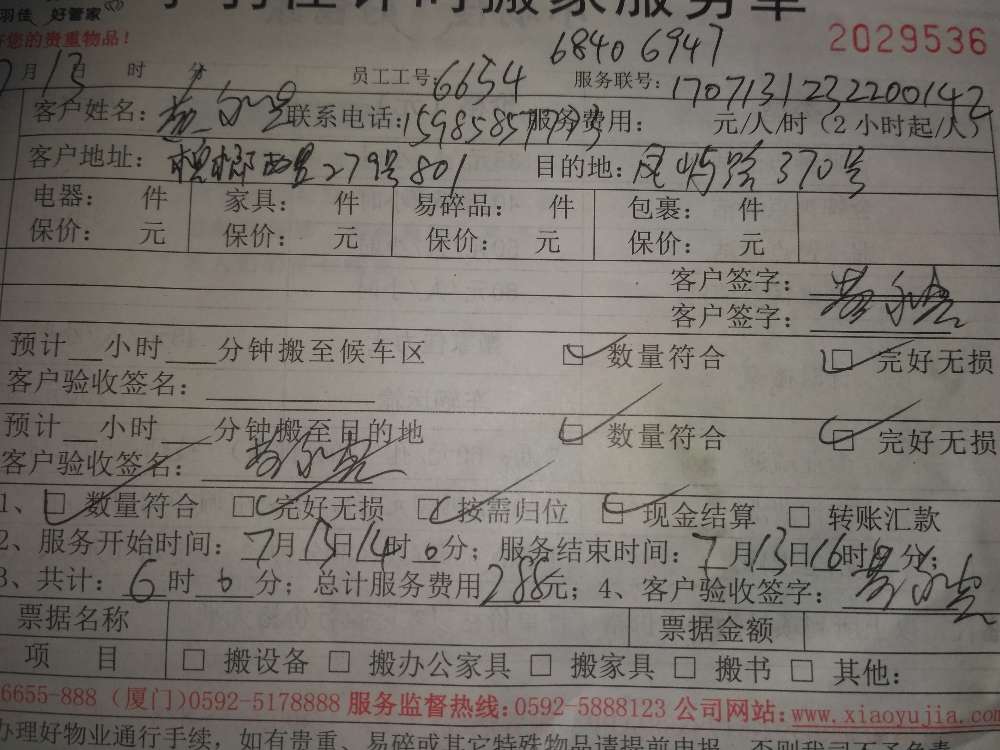 羽佳 好管家
您的贵重物品！
2029536
68406947
月13日 时 分 员工工号：6654 服务联号：170713123220014
客户姓名： 联系电话： 服务费用： 元/人/时（2小时起/人）
客户地址：槟榔西里279号801 目的地：凤屿路370号
电器： 件 家具： 件 易碎品： 件 包裹： 件
保价： 元 保价： 元 保价： 元 保价： 元
客户签字：
客户签字：
预计__小时___分钟搬至候车区 ☑ 数量符合 ☑ 完好无损
客户验收签名：
预计__小时___分钟搬至目的地 ☑ 数量符合 ☑ 完好无损
客户验收签名：
1、☑ 数量符合 ☑ 完好无损 ☑ 按需归位 ☑ 现金结算 □ 转账汇款
2、服务开始时间：7月13日14时0分；服务结束时间：7月13日16时 分；
3、共计：6时0分；总计服务费用288元；4、客户验收签字：
票据名称 票据金额
项 目 □ 搬设备 □ 搬办公家具 □ 搬家具 □ 搬书 □ 其他：
6655-888（厦门）0592-5178888 服务监督热线：0592-5888123 公司网站：www.xiaoyujia.com
办理好物业通行手续，如有贵重、易碎或其它特殊物品请提前申报，否则我司不予负责